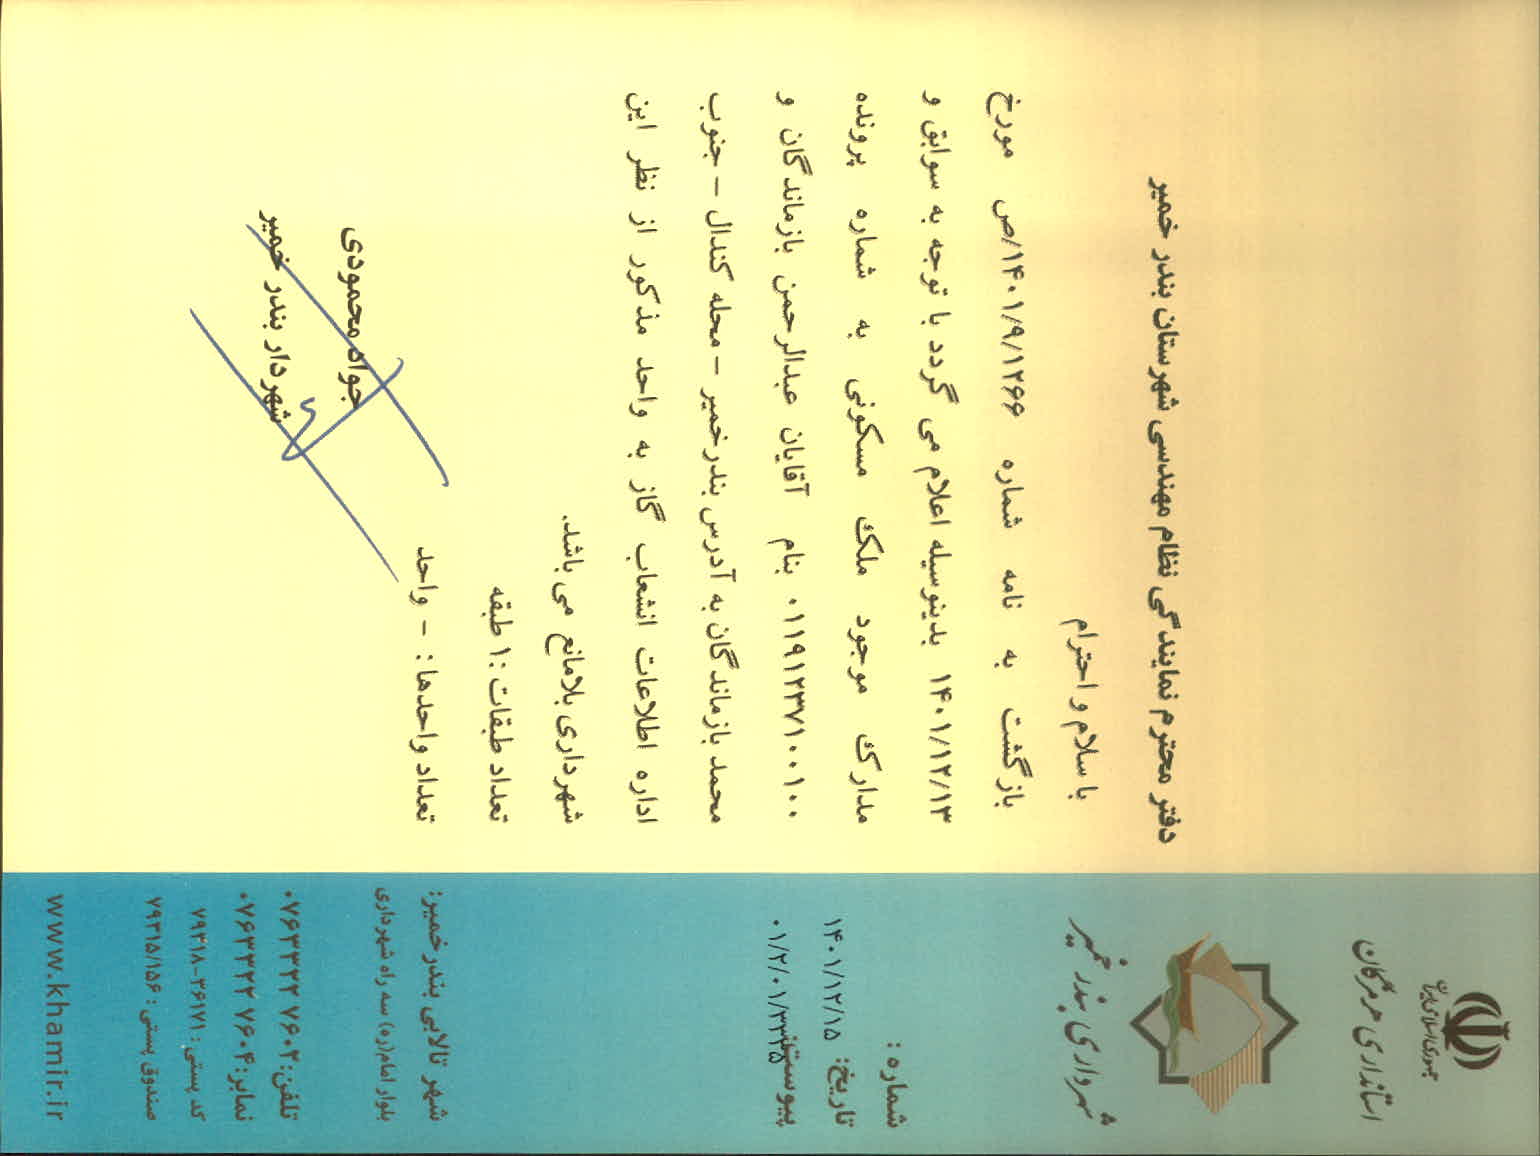 جمهوری اسلامی ایران
استانداری هرمزگان
شهرداری بندر خمیر
شماره :
تاریخ: ۱۴۰۱/۱۲/۱۵
پیوست:
۰۱/۲/۰۱/۳۳۲۵
دفتر محترم نمایندگی نظام مهندسی شهرستان بندر خمیر
با سلام و احترام
بازگشت به نامه شماره ۱۴۰۱/۹/۱۲۶۶/ص مورخ
۱۴۰۱/۱۲/۱۳ بدینوسیله اعلام می گردد با توجه به سوابق و
مدارک موجود ملک مسکونی به شماره پرونده
۰۱۱۹۱۲۳۷۱۰۰۱۰۰ بنام آقایان عبدالرحمن بازماندگان و
محمد بازماندگان به آدرس بندرخمیر – محله کندال – جنوب
اداره اطلاعات انشعاب گاز به واحد مذکور از نظر این
شهرداری بلامانع می باشد.
تعداد طبقات :۱ طبقه
تعداد واحدها : – واحد
جواد محمودی
شهردار بندر خمیر
شهر تالابی بندرخمیر:
بلوار امام(ره) سه راه شهرداری
تلفن: ۰۷۶۳۳۲۲ ۷۶۰۲
نمابر: ۰۷۶۳۳۲۲ ۷۶۰۴
کد پستی : ۳۶۱۷۱-۷۹۳۱۸
صندوق پستی : ۷۹۳۱۵/۱۵۶
www.khamir.ir